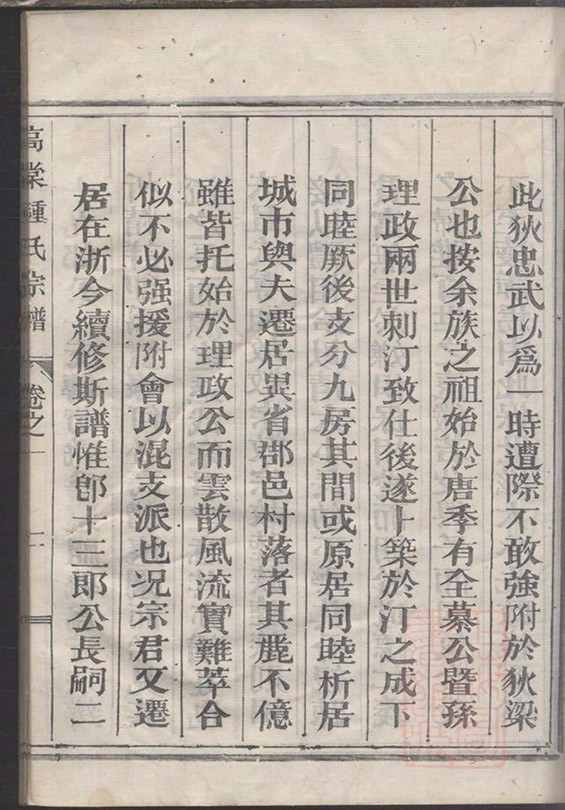 此狄忠武以爲一時遭際不敢強附於狄梁
公也按余族之祖始於唐季有全慕公暨孫
理政兩世刺汀致仕後遂卜築於汀之成下
同睦厥後支分九房其間或原居同睦析居
城市與夫遷居異省郡邑村落者其麗不億
雖皆托始於理政公而雲散風流實難萃合
似不必强援附會以混支派也况宗君又遷
居在浙今續修斯譜惟卽十三郎公長嗣二
高棠鍾氏宗譜 卷之一